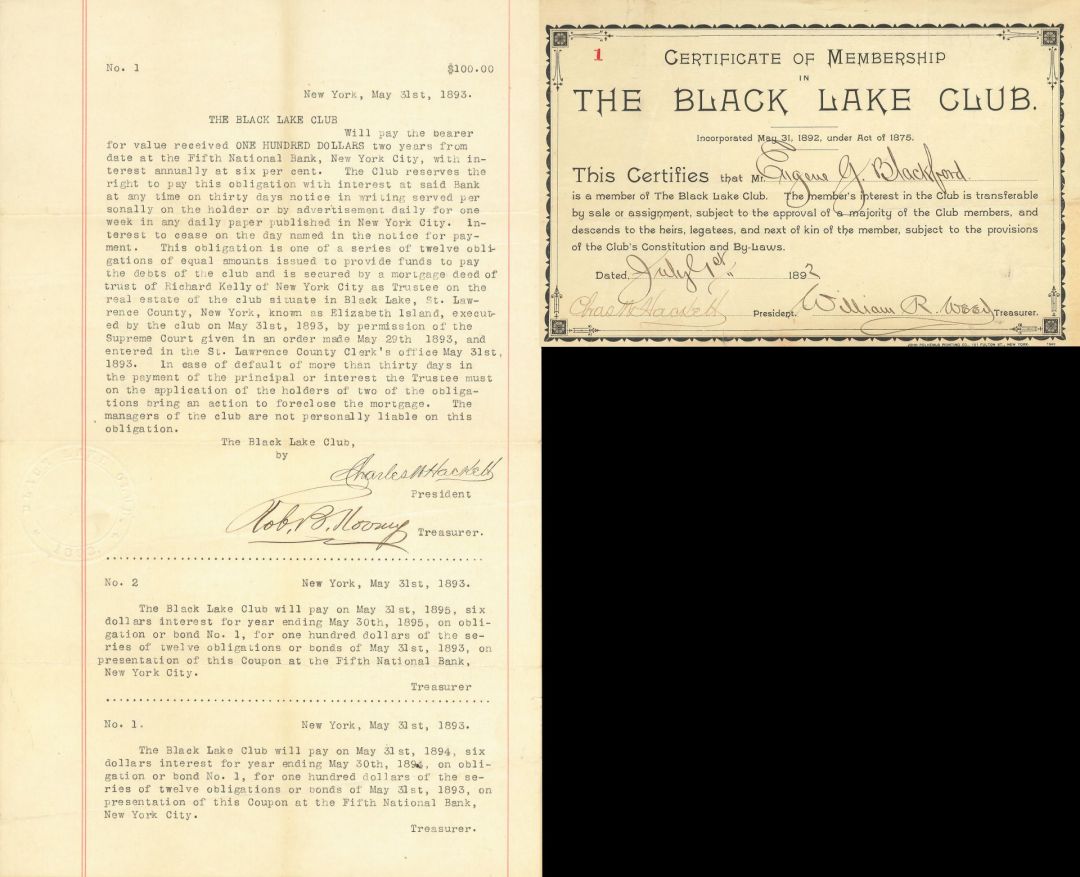 No. 1 $100.00
New York, May 31st, 1893.
THE BLACK LAKE CLUB
Will pay the bearer
for value received ONE HUNDRED DOLLARS two years from
date at the Fifth National Bank, New York City, with in-
terest annually at six per cent. The Club reserves the
right to pay this obligation with interest at said Bank
at any time on thirty days notice in writing served per
sonally on the holder or by advertisement daily for one
week in any daily paper published in New York City. In-
terest to cease on the day named in the notice for pay-
ment. This obligation is one of a series of twelve obli
gations of equal amounts issued to provide funds to pay
the debts of the club and is secured by a mortgage deed of
trust of Richard Kelly of New York City as Trustee on the
real estate of the club situate in Black Lake, St. Law-
rence County, New York, known as Elizabeth Island, execut-
ed by the club on May 31st, 1893, by permission of the
Supreme Court given in an order made May 29th 1893, and
entered in the St. Lawrence County Clerk's office May 31st,
1893. In case of default of more than thirty days in
the payment of the principal or interest the Trustee must
on the application of the holders of two of the obliga-
tions bring an action to foreclose the mortgage. The
managers of the club are not personally liable on this
obligation.
The Black Lake Club,
by
Charles W Hackett
President
Rob. B.
Treasurer.
No. 2 New York, May 31st, 1893.
The Black Lake Club will pay on May 31st, 1895, six
dollars interest for year ending May 30th, 1895, on obli-
gation or bond No. 1, for one hundred dollars of the se-
ries of twelve obligations or bonds of May 31st, 1893, on
presentation of this Coupon at the Fifth National Bank,
New York City.
Treasurer
No. 1. New York, May 31st, 1893.
The Black Lake Club will pay on May 31st, 1894, six
dollars interest for year ending May 30th, 1894, on obli-
gation or bond No. 1, for one hundred dollars of the se-
ries of twelve obligations or bonds of May 31st, 1893, on
presentation of this Coupon at the Fifth National Bank,
New York City.
Treasurer.
1
CERTIFICATE OF MEMBERSHIP
IN
THE BLACK LAKE CLUB.
Incorporated May 31, 1892, under Act of 1875.
This Certifies that Mr. Eugene G. Blackford
is a member of The Black Lake Club. The member's interest in the Club is transferable
by sale or assignment, subject to the approval of a majority of the Club members, and
descends to the heirs, legatees, and next of kin of the member, subject to the provisions
of the Club's Constitution and By-Laws.
Dated, July 1st 1892
Chas W Hackett President. William R. Weed Treasurer.
JOHN POLHEMUS PRINTING CO., 121 FULTON ST., NEW YORK.